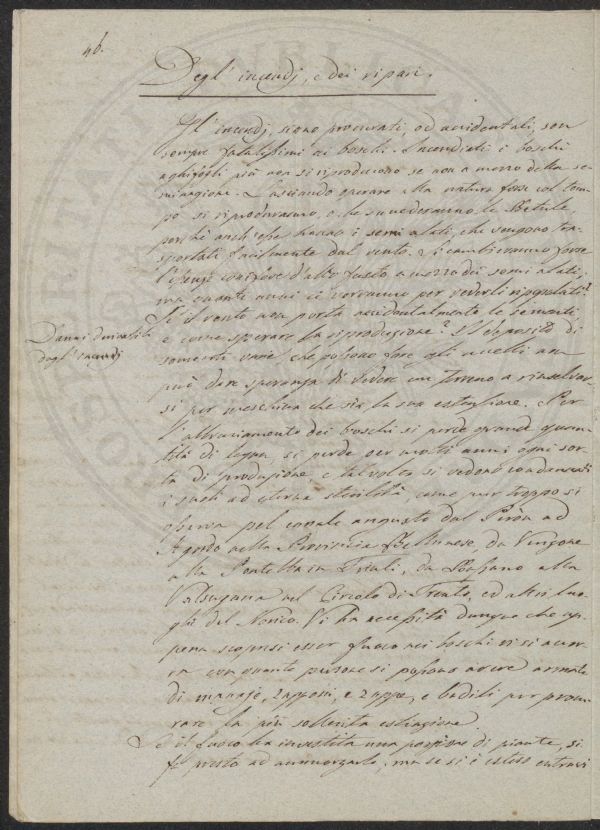 46.
Degl' incendj, e dei ripari.
Gl' incendj, sieno procurati, od accidentali, son
sempre fatalissimi ai boschi. Incendiati i boschi
aghifogli più non si riproducono se non a mezzo della se-
minagione. Lasciando operare alla natura forse col tem-
po si riprodurranno, o le succederanno le Betule,
perchè anch' esse hanno i semi alati, che vengono tra-
sportati facilmente dal vento. Si cambieranno forse
l'essenze conifere d'alto fusto a mezzo dei semi alati,
ma quanti anni ci vorranno per vederli ripopolati?
Se il vento non porta accidentalmente le sementi,
e come sperare la riproduzione? Il deposito di
sementi varie, che possono fare gli uccelli non
può dare speranza di vedere un terreno a rinselvar-
si per meschina che sia la sua estensione. Per
l'abbruciamento dei boschi si perde grande quan-
tità di legna, si perde per molti anni ogni sor-
ta di produzione e talvolta si vedono condannati
i suoli ad eterna sterilità, come pur troppo si
observa pel canale angusto dal Peron ad
Agordo nella Provincia Bellunese, da Venzone
alla Pontebba in Friuli, da Bassano alla
Valsugana nel Circolo di Trento, ed altri luo-
ghi del Norico. Vi ha necessità dunque che ap-
pena scopresi esser fuoco nei boschi vi si accor-
ra con quante persone si possono avere armate
di mannaje, zapponi, e zappe, e badili per procu-
rare la più sollecita estinzione
Se il fuoco ha investita una porzione di piante, si
fa presto ad ammorzarlo, ma se si è esteso entrovi
Danni derivabili
dagl' incendj